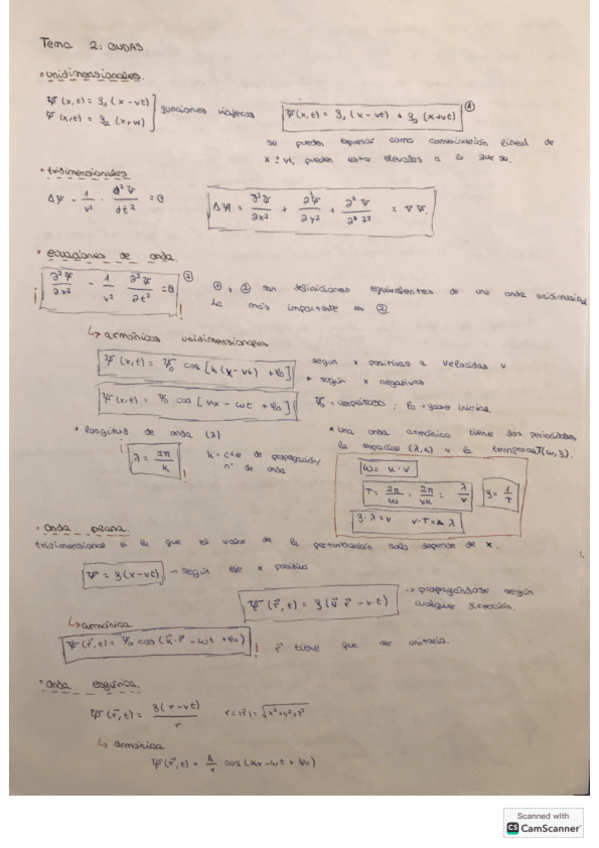 Tema 2: ONDAS.
• unidimensionales.
Ψ(x,t) = f₁(x-vt)
Ψ(x,t) = f₂(x+vt) } funciones viajeras
Ψ(x,t) = f₁(x-vt) + f₂(x+vt) ①
se pueden expresar como combinación lineal de
x ± vt, pueden estar elevados a lo que sea.
• tridimensionales
ΔΨ - 1/v² · ∂²Ψ/∂t² = 0
ΔΨ = ∂²Ψ/∂x² + ∂²Ψ/∂y² + ∂²Ψ/∂z² = ∇Ψ.
• ecuaciones de onda.
¡ ∂²Ψ/∂x² - 1/v² ∂²Ψ/∂t² = 0 ! ②
①, ② son definiciones equivalentes de una onda unidimensional
La más importante es ②
↳ armónicas unidimensionales
Ψ(x,t) = Ψ₀ cos[k(x-vt) + φ₀]
según x positivas a velocidad v
+ según x negativas
Ψ(x,t) = Ψ₀ cos[kx - ωt + φ₀]
Ψ₀ = amplitud ; φ₀ → fase inicial
• longitud de onda (λ)
¡ λ = 2π/k !
k = cte de propagación/
nº de onda
• una onda armónica tiene dos periodicidades
la espacial (λ,k) y la temporal T(ω,f).
ω = k·v
T = 2π/ω = 2π/vk = λ/v
f = 1/T
f·λ = v v·T = λ
• onda plana.
tridimensional en la que el valor de la perturbación solo depende de x.
Ψ = f(x-vt) → según eje x positivo
Ψ(r⃗,t) = f(u⃗·r⃗ - v·t)
→ propagándose según
cualquier dirección.
↳ armónica
Ψ(r⃗,t) = Ψ₀ cos(k⃗·r⃗ - ωt + φ₀) !
r⃗ tiene que ser unitario.
• onda esférica.
Ψ(r⃗,t) = f(r-vt)/r
r = |r⃗| = √x²+y²+z²
↳ armónica
Ψ(r⃗,t) = A/r cos(kr - ωt + φ₀)
Scanned with
CS CamScanner